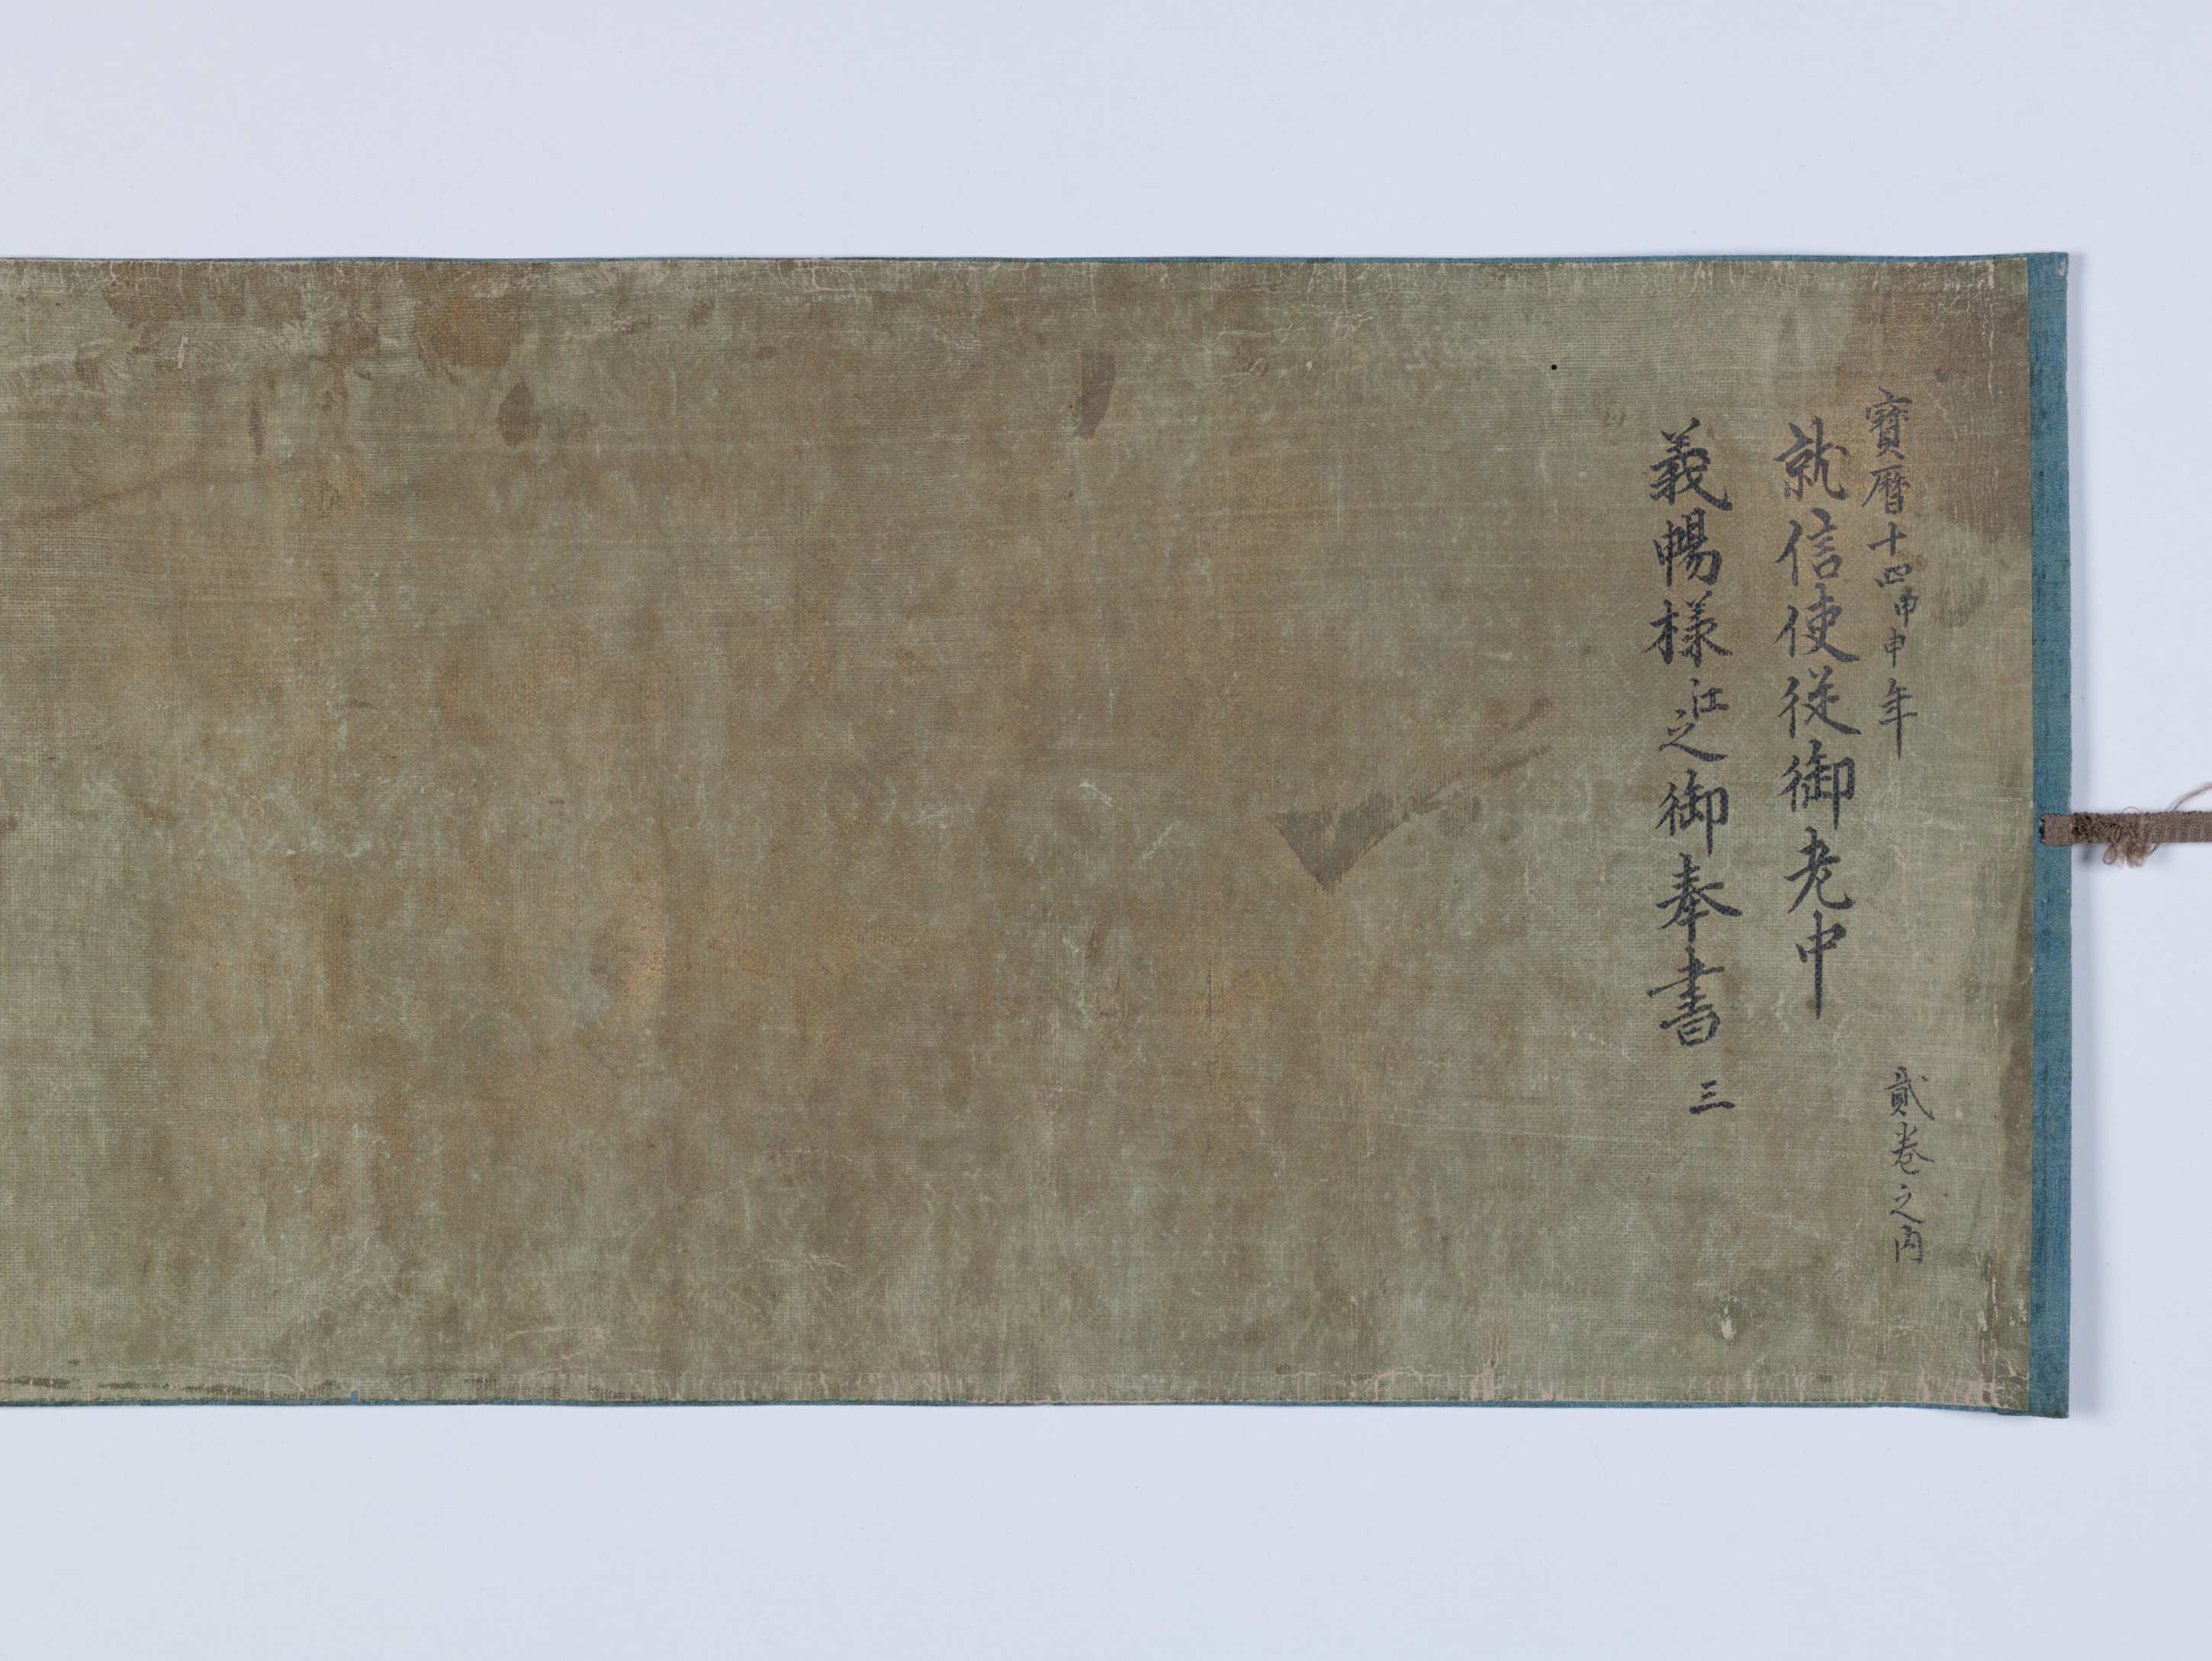 寳暦十四甲申年
貳巻之内
就信使従御老中
義暢様江之御奉書 三